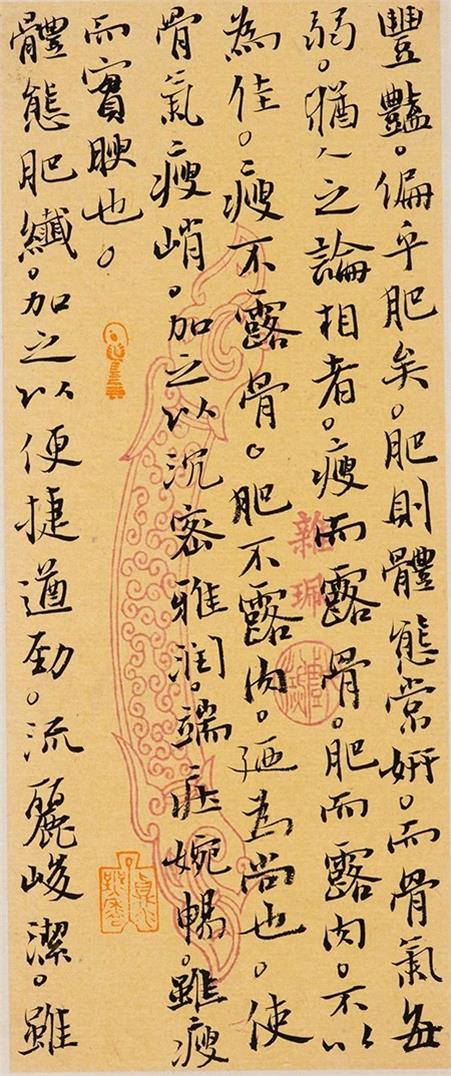 豐豔。偏乎肥矣。肥則體態常妍。而骨氣每
弱。猶人之論相者。瘦而露骨。肥而露肉。不以
為佳。瘦不露骨。肥不露肉。廼為尚也。使
骨氣瘦峭。加之以沉密雅潤。端庄婉暢。雖瘦
而實腴也。
體態肥纖。加之以便捷遒勁。流麗峻潔。雖
雜珮